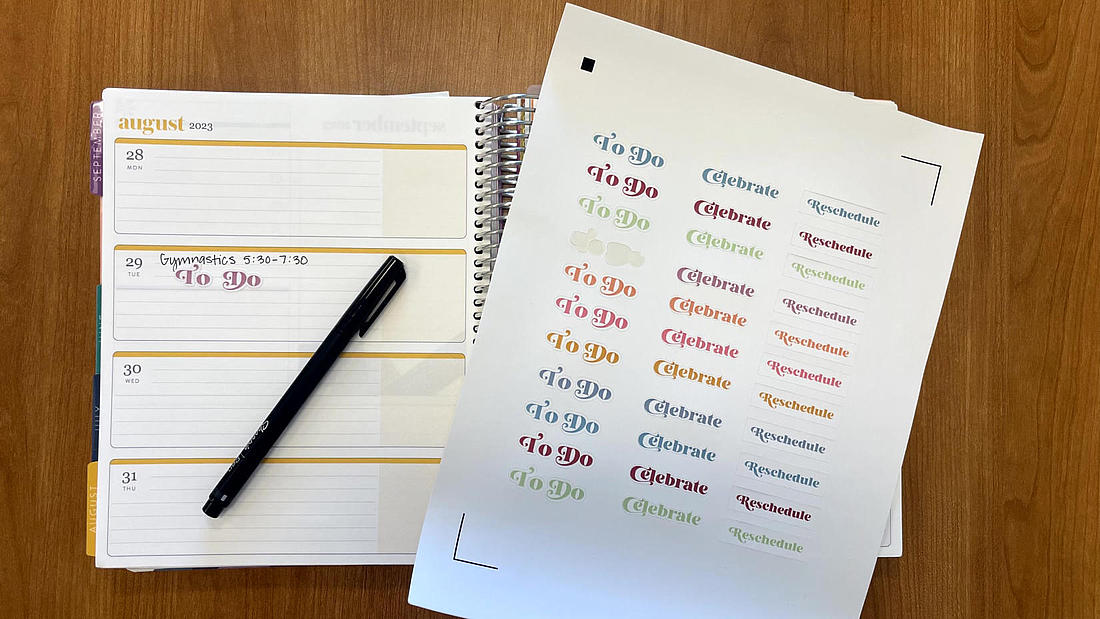 SEPTEMBER
august 2023
28
MON
29
TUE
Gymnastics 5:30-7:30
To Do
30
WED
31
THU
JULY
AUGUST
To Do
To Do
To Do
To Do
To Do
To Do
To Do
To Do
To Do
To Do
Celebrate
Celebrate
Celebrate
Celebrate
Celebrate
Celebrate
Celebrate
Celebrate
Celebrate
Celebrate
Celebrate
Reschedule
Reschedule
Reschedule
Reschedule
Reschedule
Reschedule
Reschedule
Reschedule
Reschedule
Reschedule
Reschedule